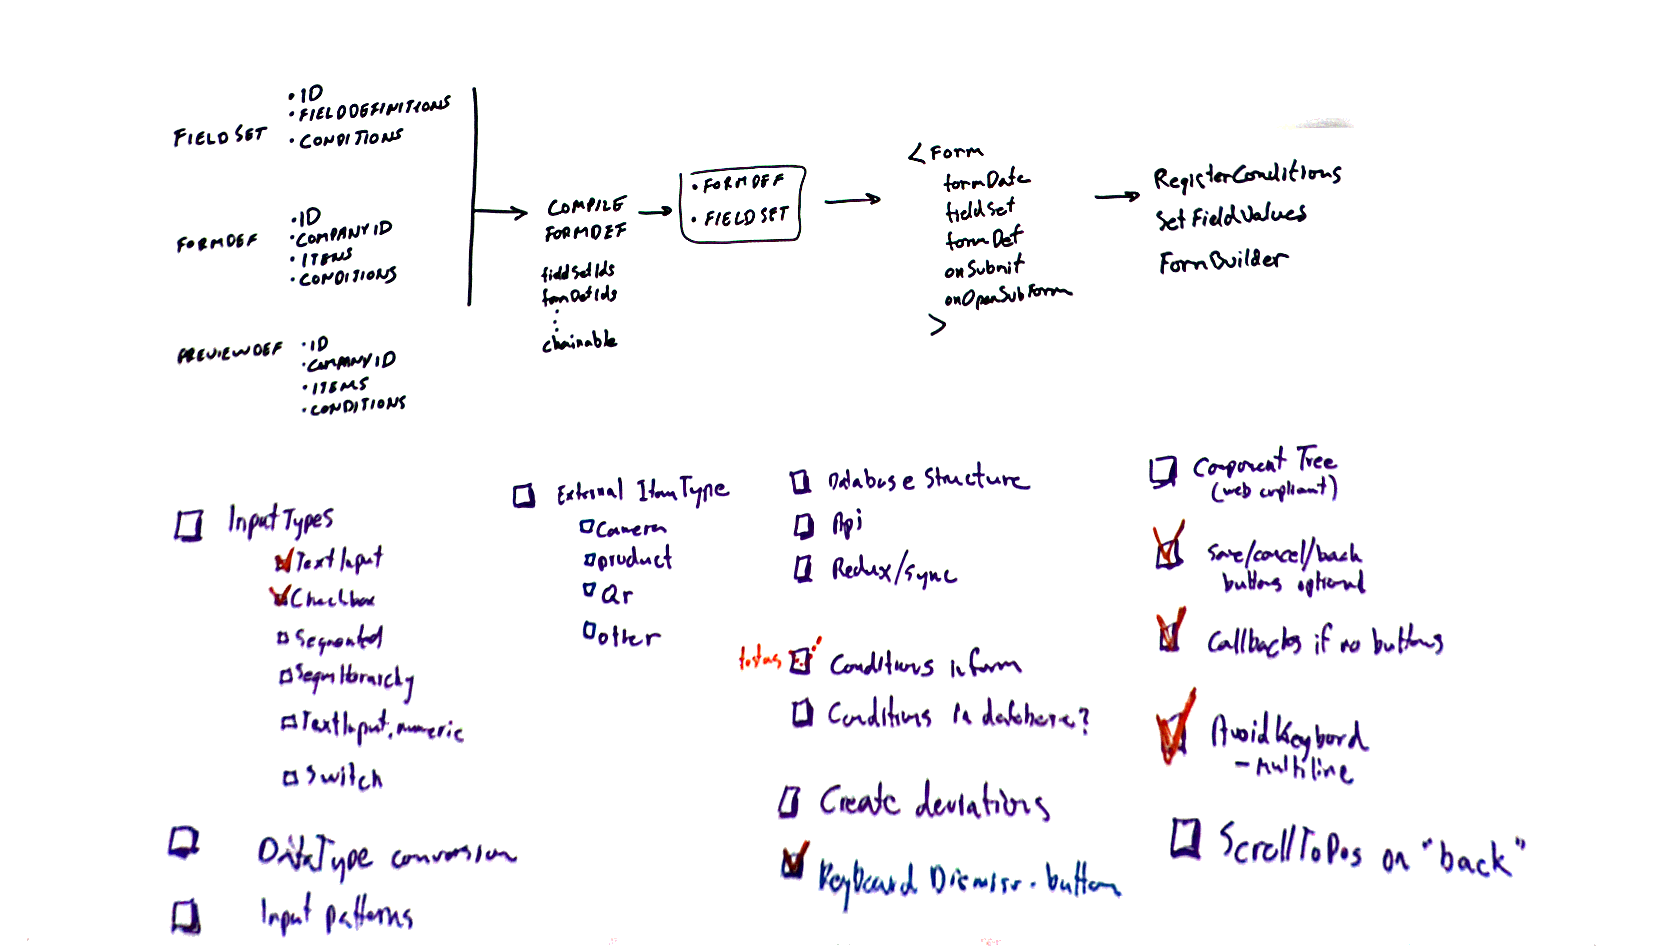 FIELDSET
• ID
• FIELDDEFINITIONS
• CONDITIONS
FORMDEF
• ID
• COMPANYID
• ITEMS
• CONDITIONS
PREVIEWDEF
• ID
• COMPANYID
• ITEMS
• CONDITIONS
COMPILE
FORMDEF
fieldSetIds
formDefIds
chainable
• FORMDEF
• FIELDSET
< Form
formData
fieldSet
formDef
onSubmit
onOpenSubForm
>
RegisterConditions
SetFieldValues
FormBuilder
InputTypes
TextInput
Checkbox
Segmented
SegmHierarchy
TextInput.numeric
Switch
DataType conversion
Input patterns
External ItemType
Camera
product
Qr
other
Database Structure
Api
Redux/sync
Conditions in form
Conditions in database?
Create deviations
Keyboard Dismiss-button
Component Tree
(web compliant)
Save/cancel/back
buttons optional
Callbacks if no buttons
AvoidKeybord
- multiline
ScrollToPos on "back"